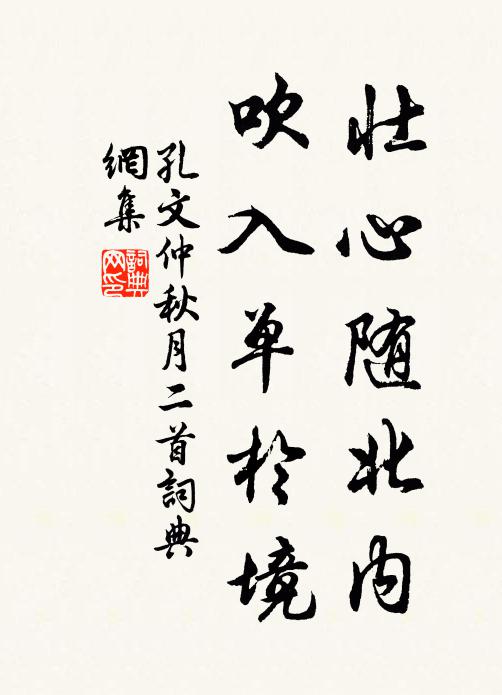 壮心随北内
吹入单于境
孔文仲秋月二首詞典
網集
詞典网印